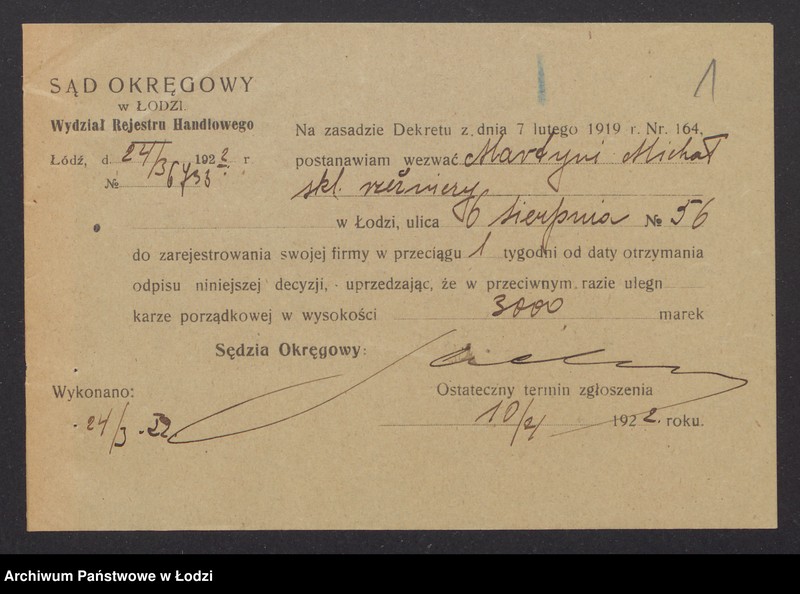 1
SĄD OKRĘGOWY
w ŁODZI.
Wydział Rejestru Handlowego
Łódź, d. 24/3 1922 r
№ 6733
Na zasadzie Dekretu z dnia 7 lutego 1919 r. Nr. 164,
postanawiam wezwać Martyni Michał
skl. rzeźniczy
w Łodzi, ulica 6 sierpnia № 56
do zarejestrowania swojej firmy w przeciągu 1 tygodni od daty otrzymania
odpisu niniejszej decyzji, uprzedzając, że w przeciwnym razie ulegn
karze porządkowej w wysokości 3000 marek
Sędzia Okręgowy:
Wykonano:
24/3 22
Ostateczny termin zgłoszenia
10/4 1922 roku.
Archiwum Państwowe w Łodzi